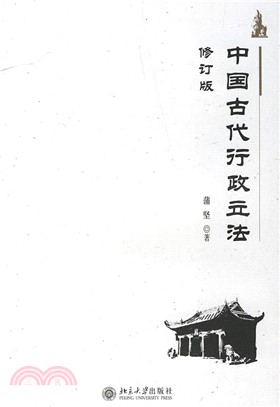 中国古代行政立法
修订版
蒲坚◎著
北京大学出版社
PEKING UNIVERSITY PRESS
三民